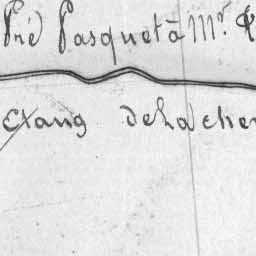 Pré Pasquet à Mr.
Etang de La Chen